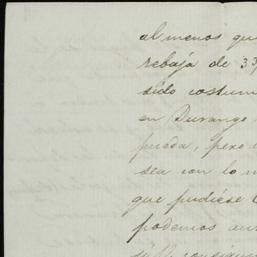 al menos qu
rebaja de 33
sido costum
en Durango
piada, pero
sea con lo m
que pudiése
podemos